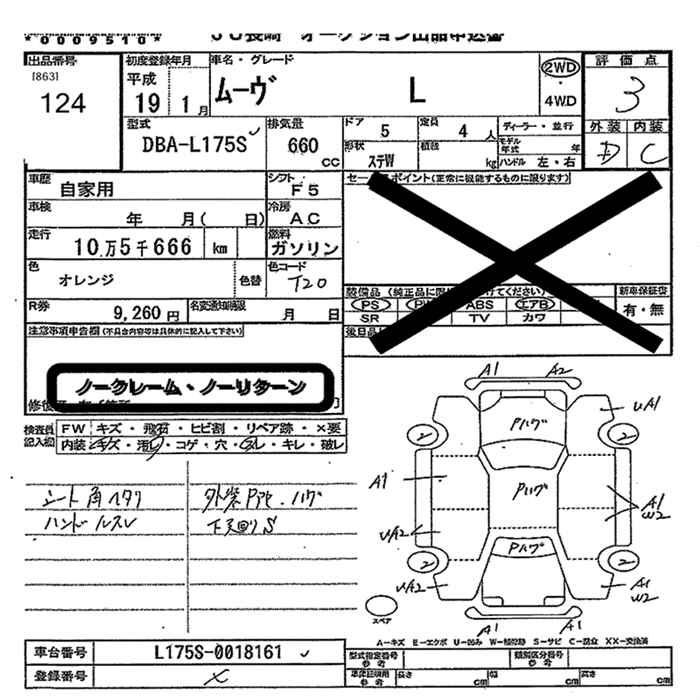 *0009510*
JU長崎 オークション出品申込書
出品番号
[863]
124
初度登録年月
平成
19 1月
車名・グレード
ムーヴ L
2WD
・
4WD
評価点
3
外装 内装
D C
型式
DBA-L175S
排気量
660
CC
ドア
5
定員
4人
ディーラー・並行
モデル年式 年
形状
ステW
積載
kg
ハンドル 左・右
車歴
自家用
シフト
F5
車検
年 月( 日)
冷房
AC
走行
10万5千666 km
燃料
ガソリン
色
オレンジ
色替
色コード
T20
R券
9,260円
名変通知期限
月 日
セールスポイント(正常に機能するものに限ります)
装備品(純正品に限
けてください)
PS
ABS
エアB
SR
TV
カワ
新車保証書
有・無
後日品
注意事項申告欄(不具合内容等は具体的に記入して下さい)
ノークレーム・ノーリターン
検査員記入欄
FW キズ・飛石・ヒビ割・リペア跡・×要
内装 キズ・汚レ・コゲ・穴・スレ・キレ・破レ
シート角ヘタリ
ハンドルスレ
外装Pアセ・ハゲ
下廻りS
A1 A2
Pハゲ
UA1
2 2
A1
Pハゲ
A1
W2
UA2
Pハゲ
2 2
UA2
A1
W2
スペア
A1 A1
A−キズ E−エクボ U−凹み W−補修跡 S−サビ C−腐食 XX−交換済
車台番号
L175S-0018161
登録番号
×
型式指定番号
参考
類別区分番号
参考
車庫証明用
参考
長さ cm
幅 cm
高さ cm